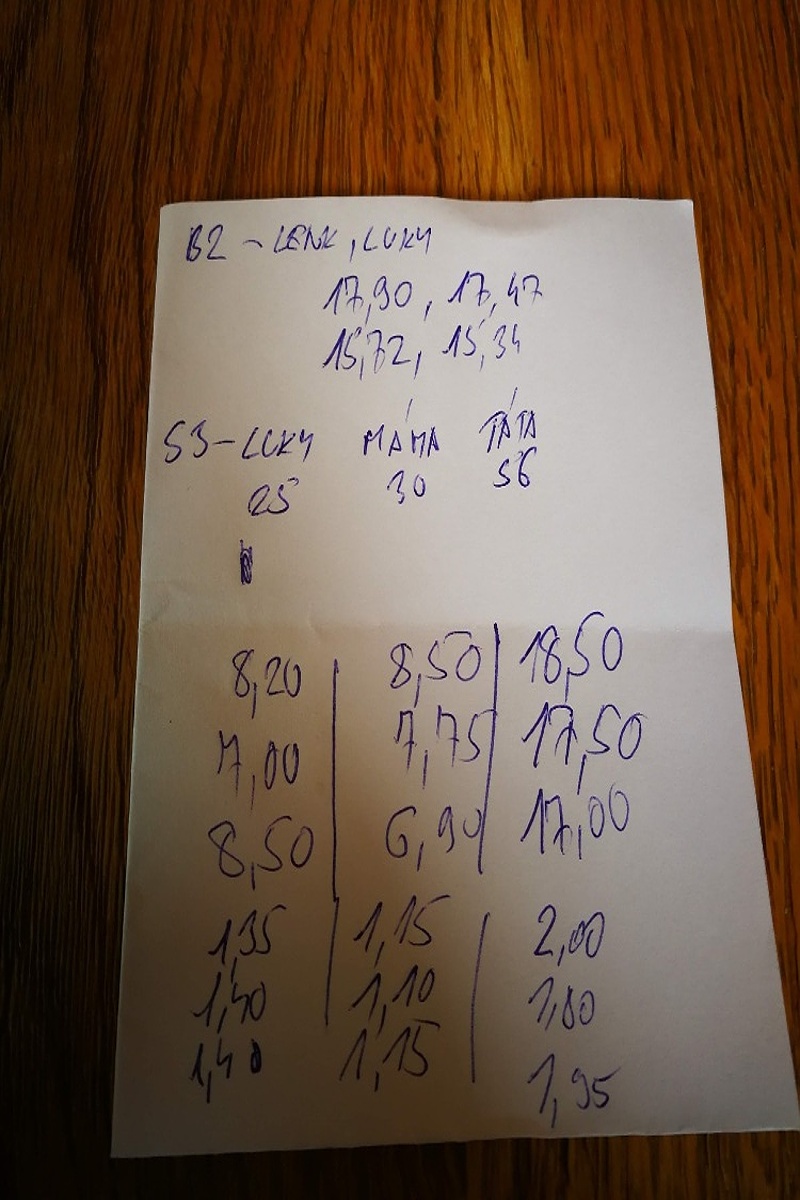 B2 - LENK, LUKY
17,90, 17,47
15,72, 15,34
S3 - LUKY MÁMA TÁTA
25 30 56
8,20 8,50 18,50
7,00 7,75 17,50
8,50 6,90 17,00
1,35 1,15 2,00
1,40 1,10 1,80
1,40 1,15 1,95